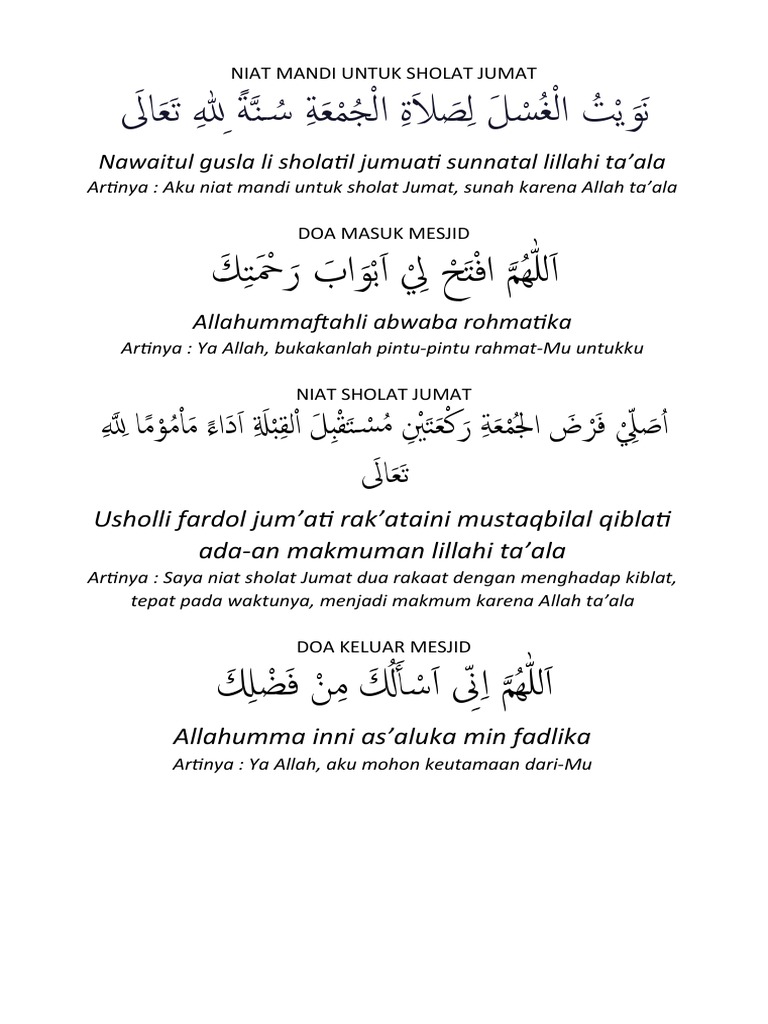 NIAT MANDI UNTUK SHOLAT JUMAT
نَوَيْتُ الْغُسْلَ لِصَلاَةِ الْجُمْعَةِ سُنَّةً ِللهِ تَعَالَى
Nawaitul gusla li sholatil jumuati sunnatal lillahi ta’ala
Artinya : Aku niat mandi untuk sholat Jumat, sunah karena Allah ta’ala
DOA MASUK MESJID
اَللّٰهُمَّ افْتَحْ لِيْ اَبْوَابَ رَحْمَتِكَ
Allahummaftahli abwaba rohmatika
Artinya : Ya Allah, bukakanlah pintu-pintu rahmat-Mu untukku
NIAT SHOLAT JUMAT
اُصَلِّيْ فَرْضَ الجُمْعَةِ رَكْعَتَيْنِ مُسْتَقْبِلَ اْلقِبْلَةِ اَدَاءً مَأْمُوْمًا لِلَّهِ
تَعَالَى
Usholli fardol jum’ati rak’ataini mustaqbilal qiblati
ada-an makmuman lillahi ta’ala
Artinya : Saya niat sholat Jumat dua rakaat dengan menghadap kiblat,
tepat pada waktunya, menjadi makmum karena Allah ta’ala
DOA KELUAR MESJID
اَللّٰهُمَّ اِنِّى اَسْأَلُكَ مِنْ فَضْلِكَ
Allahumma inni as’aluka min fadlika
Artinya : Ya Allah, aku mohon keutamaan dari-Mu